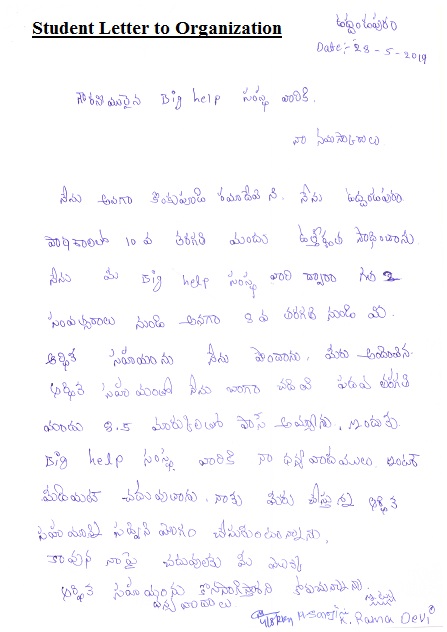 Student Letter to Organization
ఉద్దండపురం
Date:- 28-5-2019
గౌరవనీయులైన Big help సంస్థ వారికి.
నా నమస్కారములు.
నేను అనగా కొంకుపూడి రమాదేవి ని. నేను ఉద్దండపురం
10 వ తరగతి నందు ఉత్తీర్ణత సాధించాను
నేను మీ Big help సంస్థ వారి ద్వారా గత 2
సంవత్సరాలు నుండి అనగా 8 వ తరగతి నుండి మీ
ఆర్థిక సహాయాను నేను పొందాను. మీరు అందించిన
ఆర్థిక సహాయంతో నేను బాగా చదివి పదవ తరగతి
నందు 8.5 మార్కులతో పాస్ అయ్యాను. ఇందుకు
Big help సంస్థ వారికి నా ధన్యవాదములు ఇంటర్
చదువుతాను. నాకు మీరు చేస్తున్న ఆర్థిక
సహాయాన్ని
కావున నా పై చదువులకు మీ యొక్క
ఆర్థిక సహాయంను కొనసాగిస్తారని కోరుచున్నాను.
ధన్యవాదాలు
K. Rama Devi